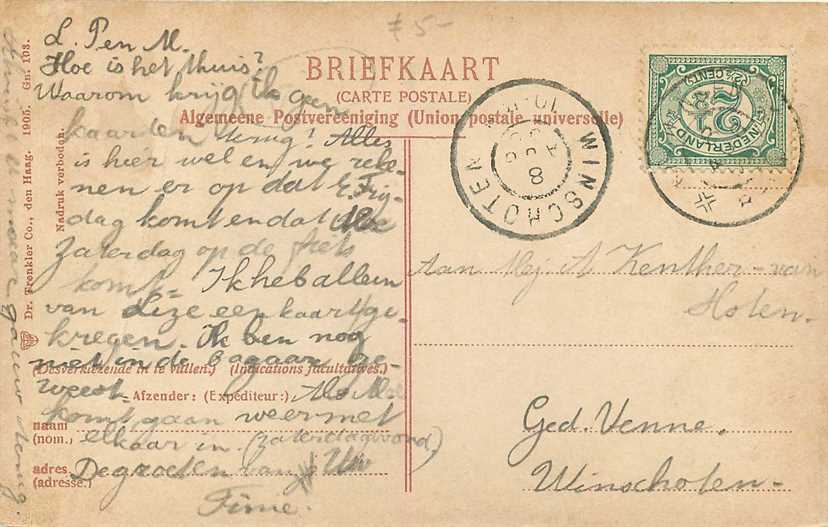 ƒ 5-
L. Pen M.
Hoe is het thuis?
Waarom krijg ik geen
kaarten terug! Alles
is hier wel en we reke-
nen er op dat E Frij-
dag komt en dat
Zaterdag op de fiets
komt. Ik heb alleen
van Lize een kaart ge-
kregen. Ik ben nog
niet in de bagaar ge-
weest. Als M.
komt, gaan we er met
elkaar in. (Zaterdagavond)
De groeten van Uw
Finie.
BRIEFKAART
(CARTE POSTALE)
Algemeene Postvereeniging (Union postale universelle)
WINSCHOTEN
8
NEDERLAND
2½ CENT
Aan Mej A Kenther-van
Holen.
Ged. Venne,
Winschoten-
(Desverkiezende in te vullen.) (Indications facultatives.)
Afzender: (Expéditeur:)
naam
(nom.,
adres
(adresse.)
Dr. Trenkler Co., den Haag. 1905. Gn. 103.
Nadruk verboden.
Schrijf nu maar gauw terug.